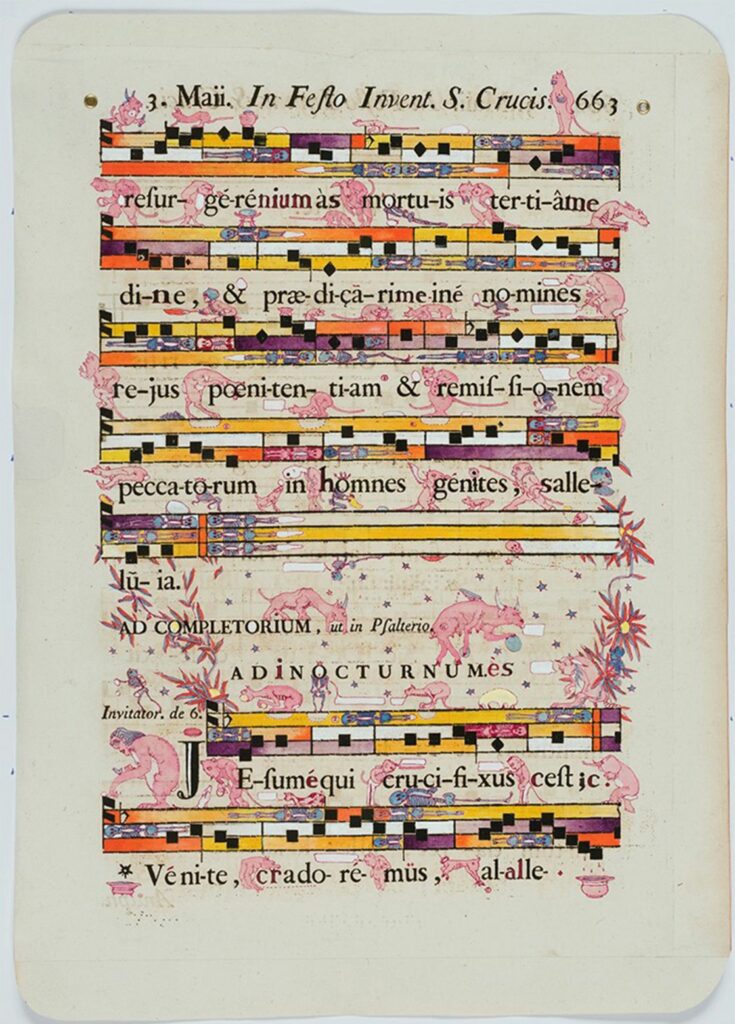 3. Maii. In Feſto Invent. S. Crucis. 663
reſur- gé-réniumàs mortu-is ter-ti-âme
di-ne, & præ-di-çā-rime-iné no-mines
re-jus pœni-ten- ti-am & remiſ-ſi-o-nem
pecca-to-rum in homnes génites, salle-
lŭ- ia.
AD COMPLETORIUM, ut in Pſalterio.
ADINOCTURNUM.ès
Invitator. de 6.
JE-ſuméqui cru-ci-fi-xus
* Vé ni-te, crado- ré- müs, al-alle-